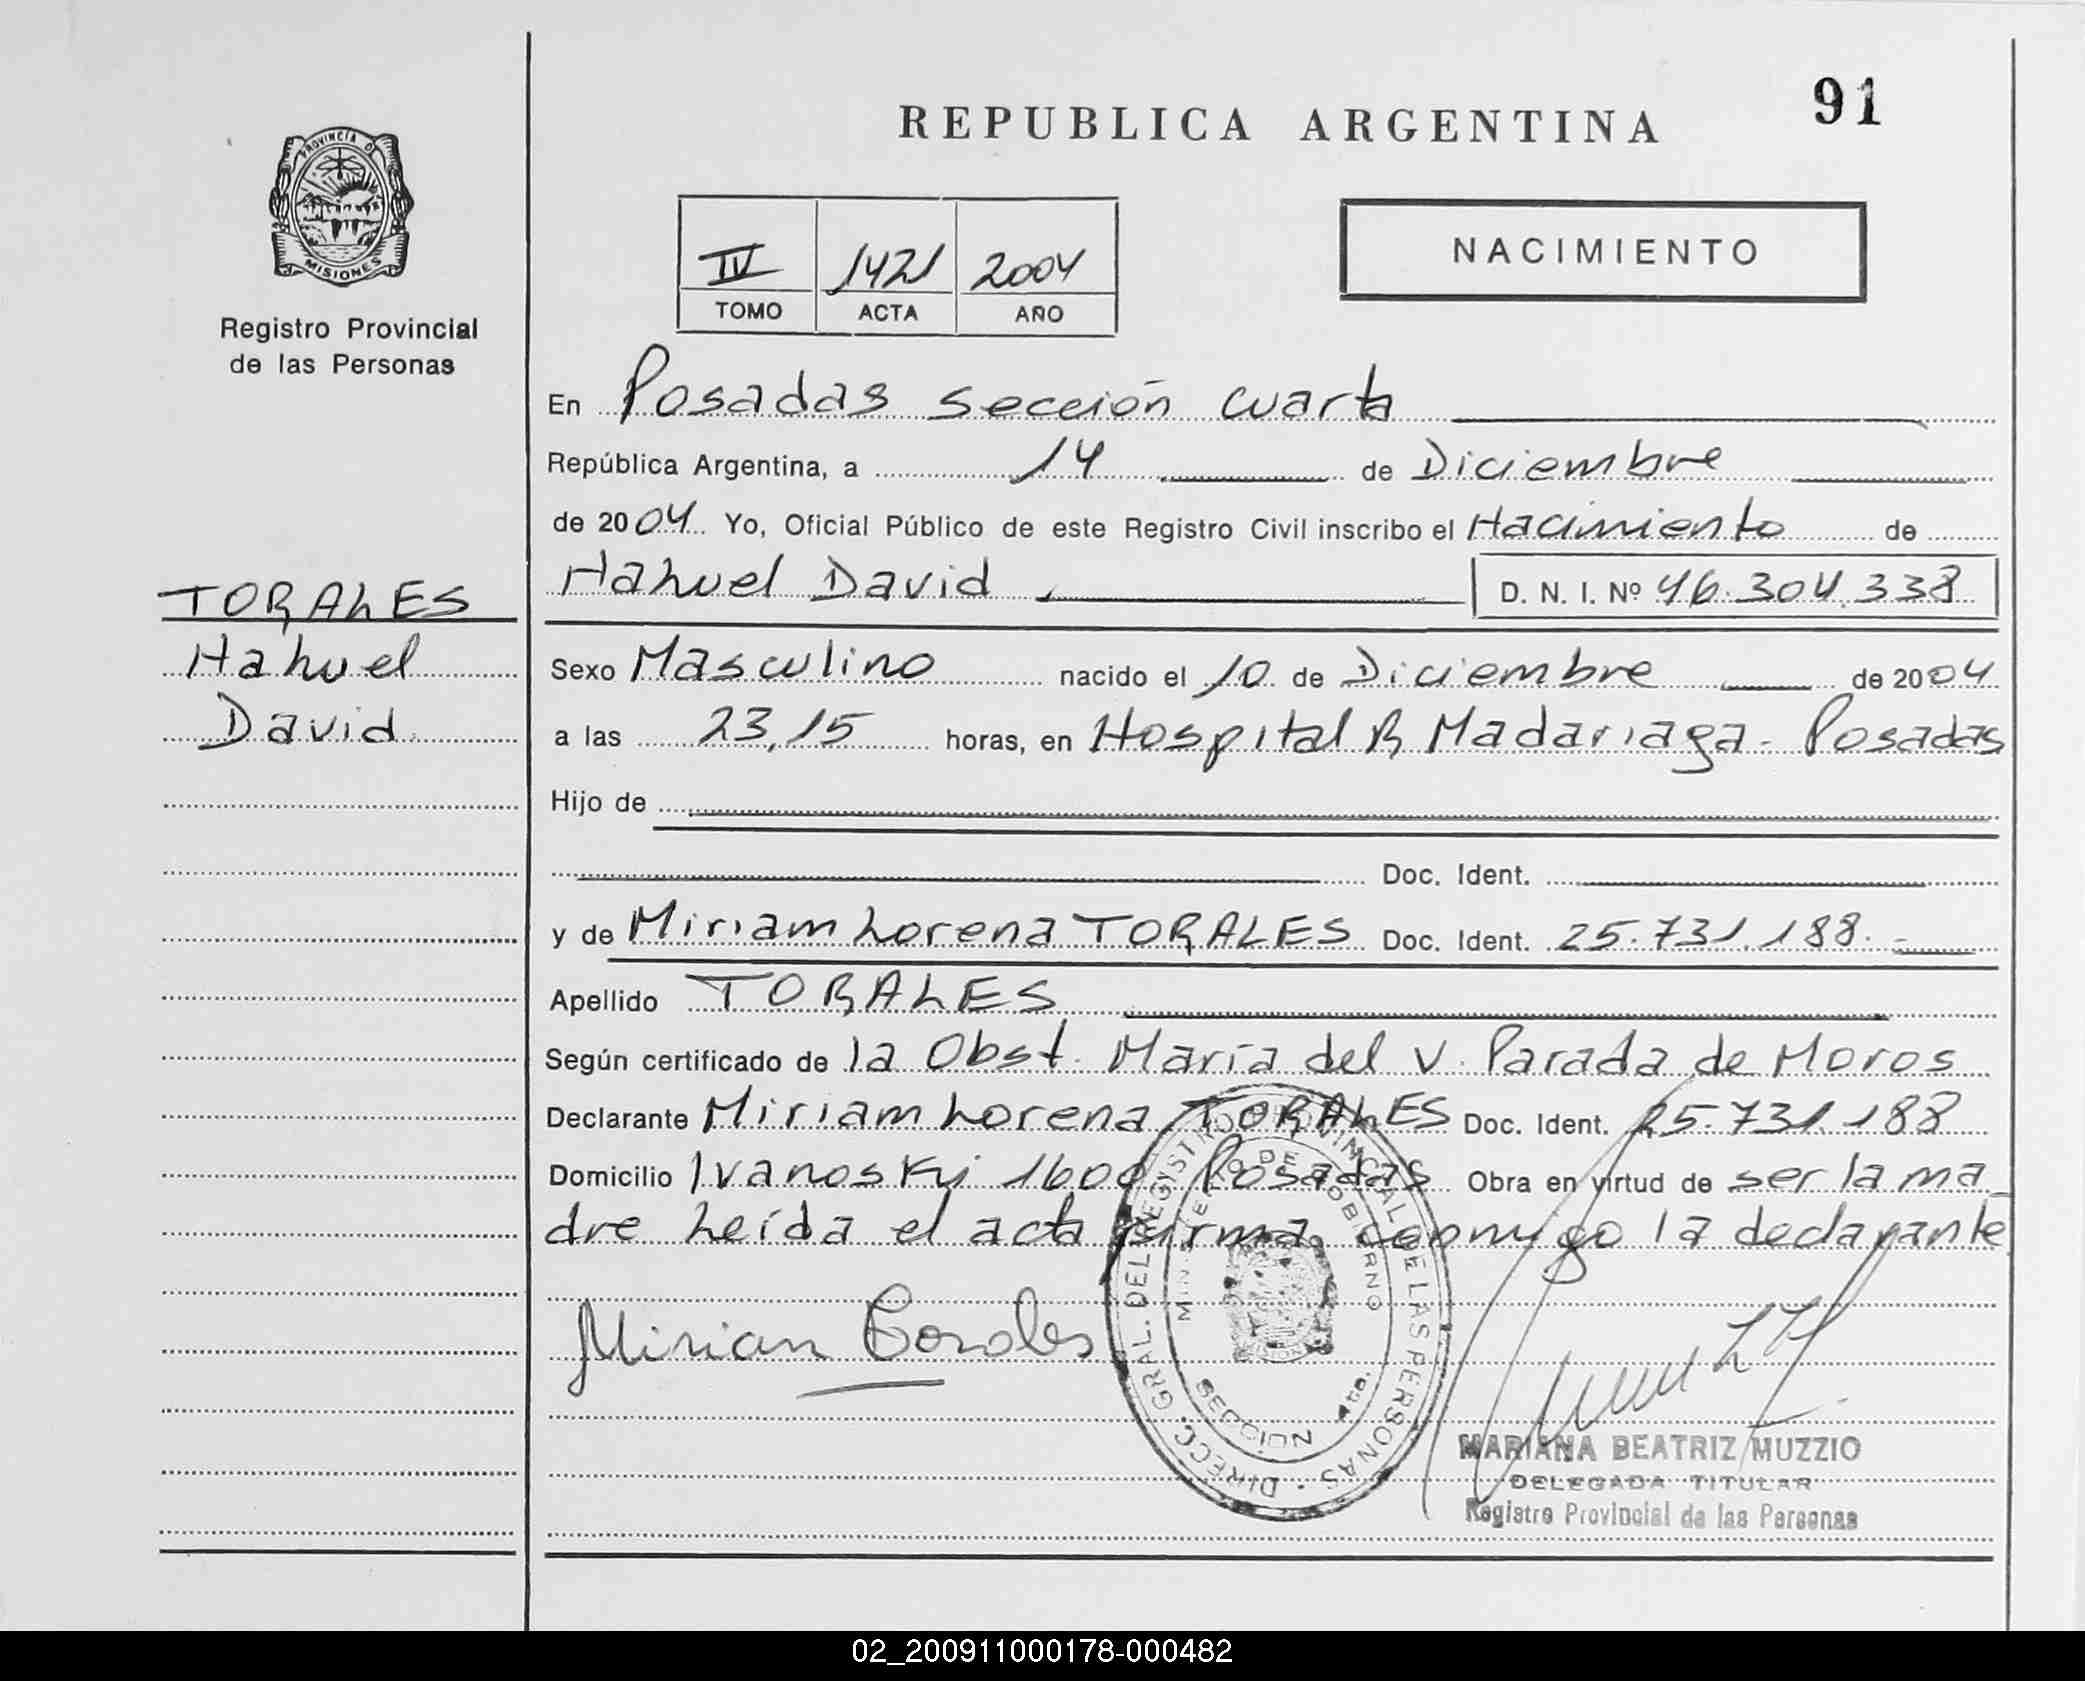 91
REPUBLICA ARGENTINA
PROVINCIA D MISIONES
Registro Provincial
de las Personas
NACIMIENTO
IV 1421 2004
TOMO ACTA AÑO
En Posadas sección cuarta
República Argentina, a 14 de Diciembre
de 2004 Yo, Oficial Público de este Registro Civil inscribo el Nacimiento de
Nahuel David D. N. I. Nº 46.304.338
TORALES
Nahuel
David
Sexo Masculino nacido el 10 de Diciembre de 2004
a las 23,15 horas, en Hospital R Madariaga - Posadas
Hijo de
Doc. Ident.
y de Miriam Lorena TORALES Doc. Ident. 25.731.188.-
Apellido TORALES
Según certificado de la Obst. María del V. Parada de Moros
Declarante Miriam Lorena TORALES Doc. Ident. 25.731.188
Domicilio Ivanoski 1600 Posadas Obra en virtud de ser la ma_
dre Leída el acta firma conmigo la declarante
Mirian Torales
DIRECC. GRAL. DEL REGISTRO PROVINCIAL DE LAS PERSONAS
MINISTERIO DE GOBIERNO
SECCION 4ta.
MARIANA BEATRIZ MUZZIO
DELEGADA TITULAR
Registro Provincial de las Personas
02_200911000178-000482